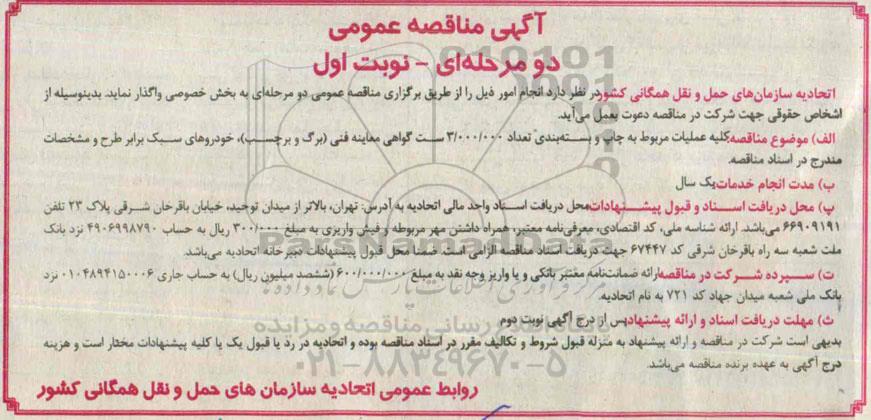 آگهی مناقصه عمومی
دو مرحله‌ای - نوبت اول
اتحادیه سازمان‌های حمل و نقل همگانی کشور در نظر دارد انجام امور ذیل را از طریق برگزاری مناقصه عمومی دو مرحله‌ای به بخش خصوصی واگذار نماید. بدینوسیله از
اشخاص حقوقی جهت شرکت در مناقصه دعوت بعمل می‌آید.
الف) موضوع مناقصه: کلیه عملیات مربوط به چاپ و بسته‌بندی تعداد ۳/۰۰۰/۰۰۰ ست گواهی معاینه فنی (برگ و برچسب)، خودروهای سبک برابر طرح و مشخصات
مندرج در اسناد مناقصه.
ب) مدت انجام خدمات: یک سال
پ) محل دریافت اسناد و قبول پیشنهادات: محل دریافت اسناد واحد مالی اتحادیه به آدرس: تهران، بالاتر از میدان توحید، خیابان باقرخان شرقی پلاک ۲۳ تلفن
۶۶۹۰۹۱۹۱ می‌باشد. ارائه شناسه ملی، کد اقتصادی، معرفی‌نامه معتبر، همراه داشتن مهر مربوطه و فیش واریزی به مبلغ ۳۰۰/۰۰۰ ریال به حساب ۴۹۰۶۹۹۸۷۹۰ نزد بانک
ملت شعبه سه راه باقرخان شرقی کد ۶۷۴۴۷ جهت دریافت اسناد مناقصه الزامی است. ضمنا محل قبول پیشنهادات دبیرخانه اتحادیه می‌باشد.
ت) سپرده شرکت در مناقصه: ارائه ضمانت‌نامه معتبر بانکی و یا واریز وجه نقد به مبلغ ۶۰۰/۰۰۰/۰۰۰ (ششصد میلیون ریال) به حساب جاری ۰۱۰۴۸۹۴۱۵۰۰۰۶ نزد
بانک ملی شعبه میدان جهاد کد ۷۲۱ به نام اتحادیه.
ث) مهلت دریافت اسناد و ارائه پیشنهاد: پس از درج آگهی نوبت دوم
بدیهی است شرکت در مناقصه و ارائه پیشنهاد به منزله قبول شروط و تکالیف مقرر در اسناد مناقصه بوده و اتحادیه در رد یا قبول یک یا کلیه پیشنهادات مختار است و هزینه
درج آگهی به عهده برنده مناقصه می‌باشد.
روابط عمومی اتحادیه سازمان های حمل و نقل همگانی کشور
ParsNamadData
۰۲۱-۸۸۳۴۹۶۷۰-۵